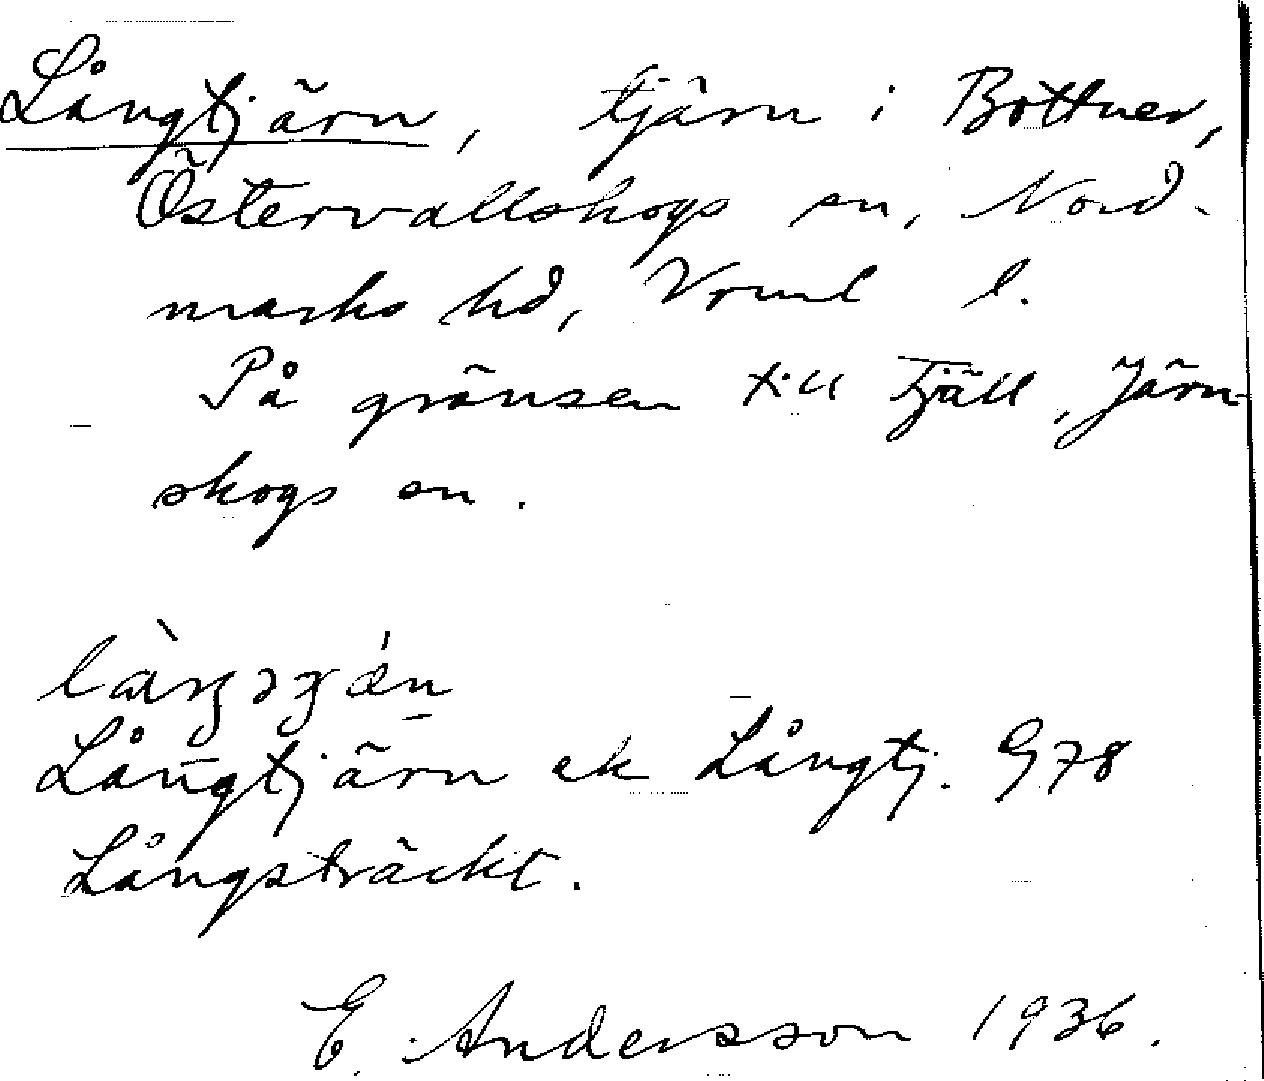 Långtjärn, tjärn i Bottner,
Östervallskogs sn, Nord-
marks hd, Vrml l.
På gränsen till Fjäll, Järn-
skogs sn.
Långtjärn ek Långtj. G78
Långsträckt.
E. Andersson 1936.